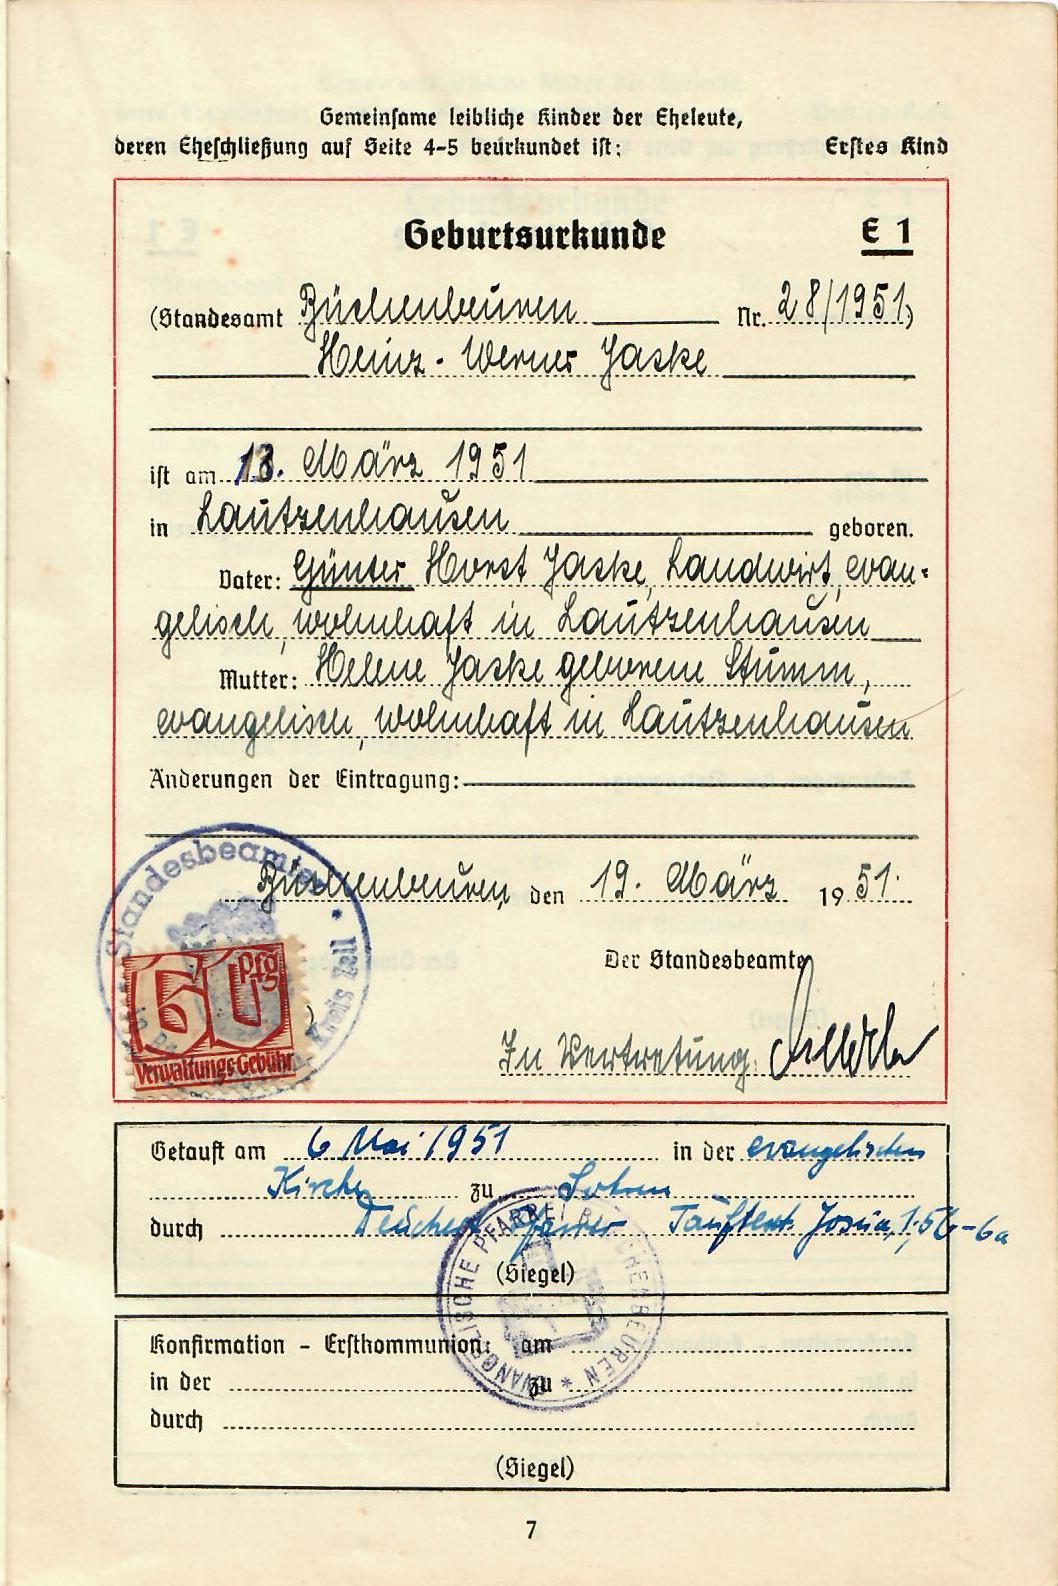 Gemeinsame leibliche Kinder der Eheleute,
deren Eheschließung auf Seite 4-5 beurkundet ist: Erstes Kind
Geburtsurkunde E 1
(Standesamt Büchenbeuren Nr. 28/1951)
Heinz-Werner Jaske
ist am 13. März 1951
in Lautzenhausen geboren.
Vater: Günter Horst Jaske, Landwirt, evan-
gelisch, wohnhaft in Lautzenhausen
Mutter: Helene Jaske geborene Stumm,
evangelisch, wohnhaft in Lautzenhausen
Änderungen der Eintragung:
Büchenbeuren, den 19. März 1951.
Standesbeamte * Kreis Zell
60 Pfg
Verwaltungs-Gebühr
Der Standesbeamte
In Vertretung:
Getauft am 6 Mai 1951 in der evangelischen
Kirche zu Sohren
durch Pfarrer Tauftext. Josua, 1,5b-6a
(Siegel)
EVANGELISCHE PFARREI BÜCHENBEUREN *
Konfirmation - Erstkommunion: am
in der zu
durch
(Siegel)
7